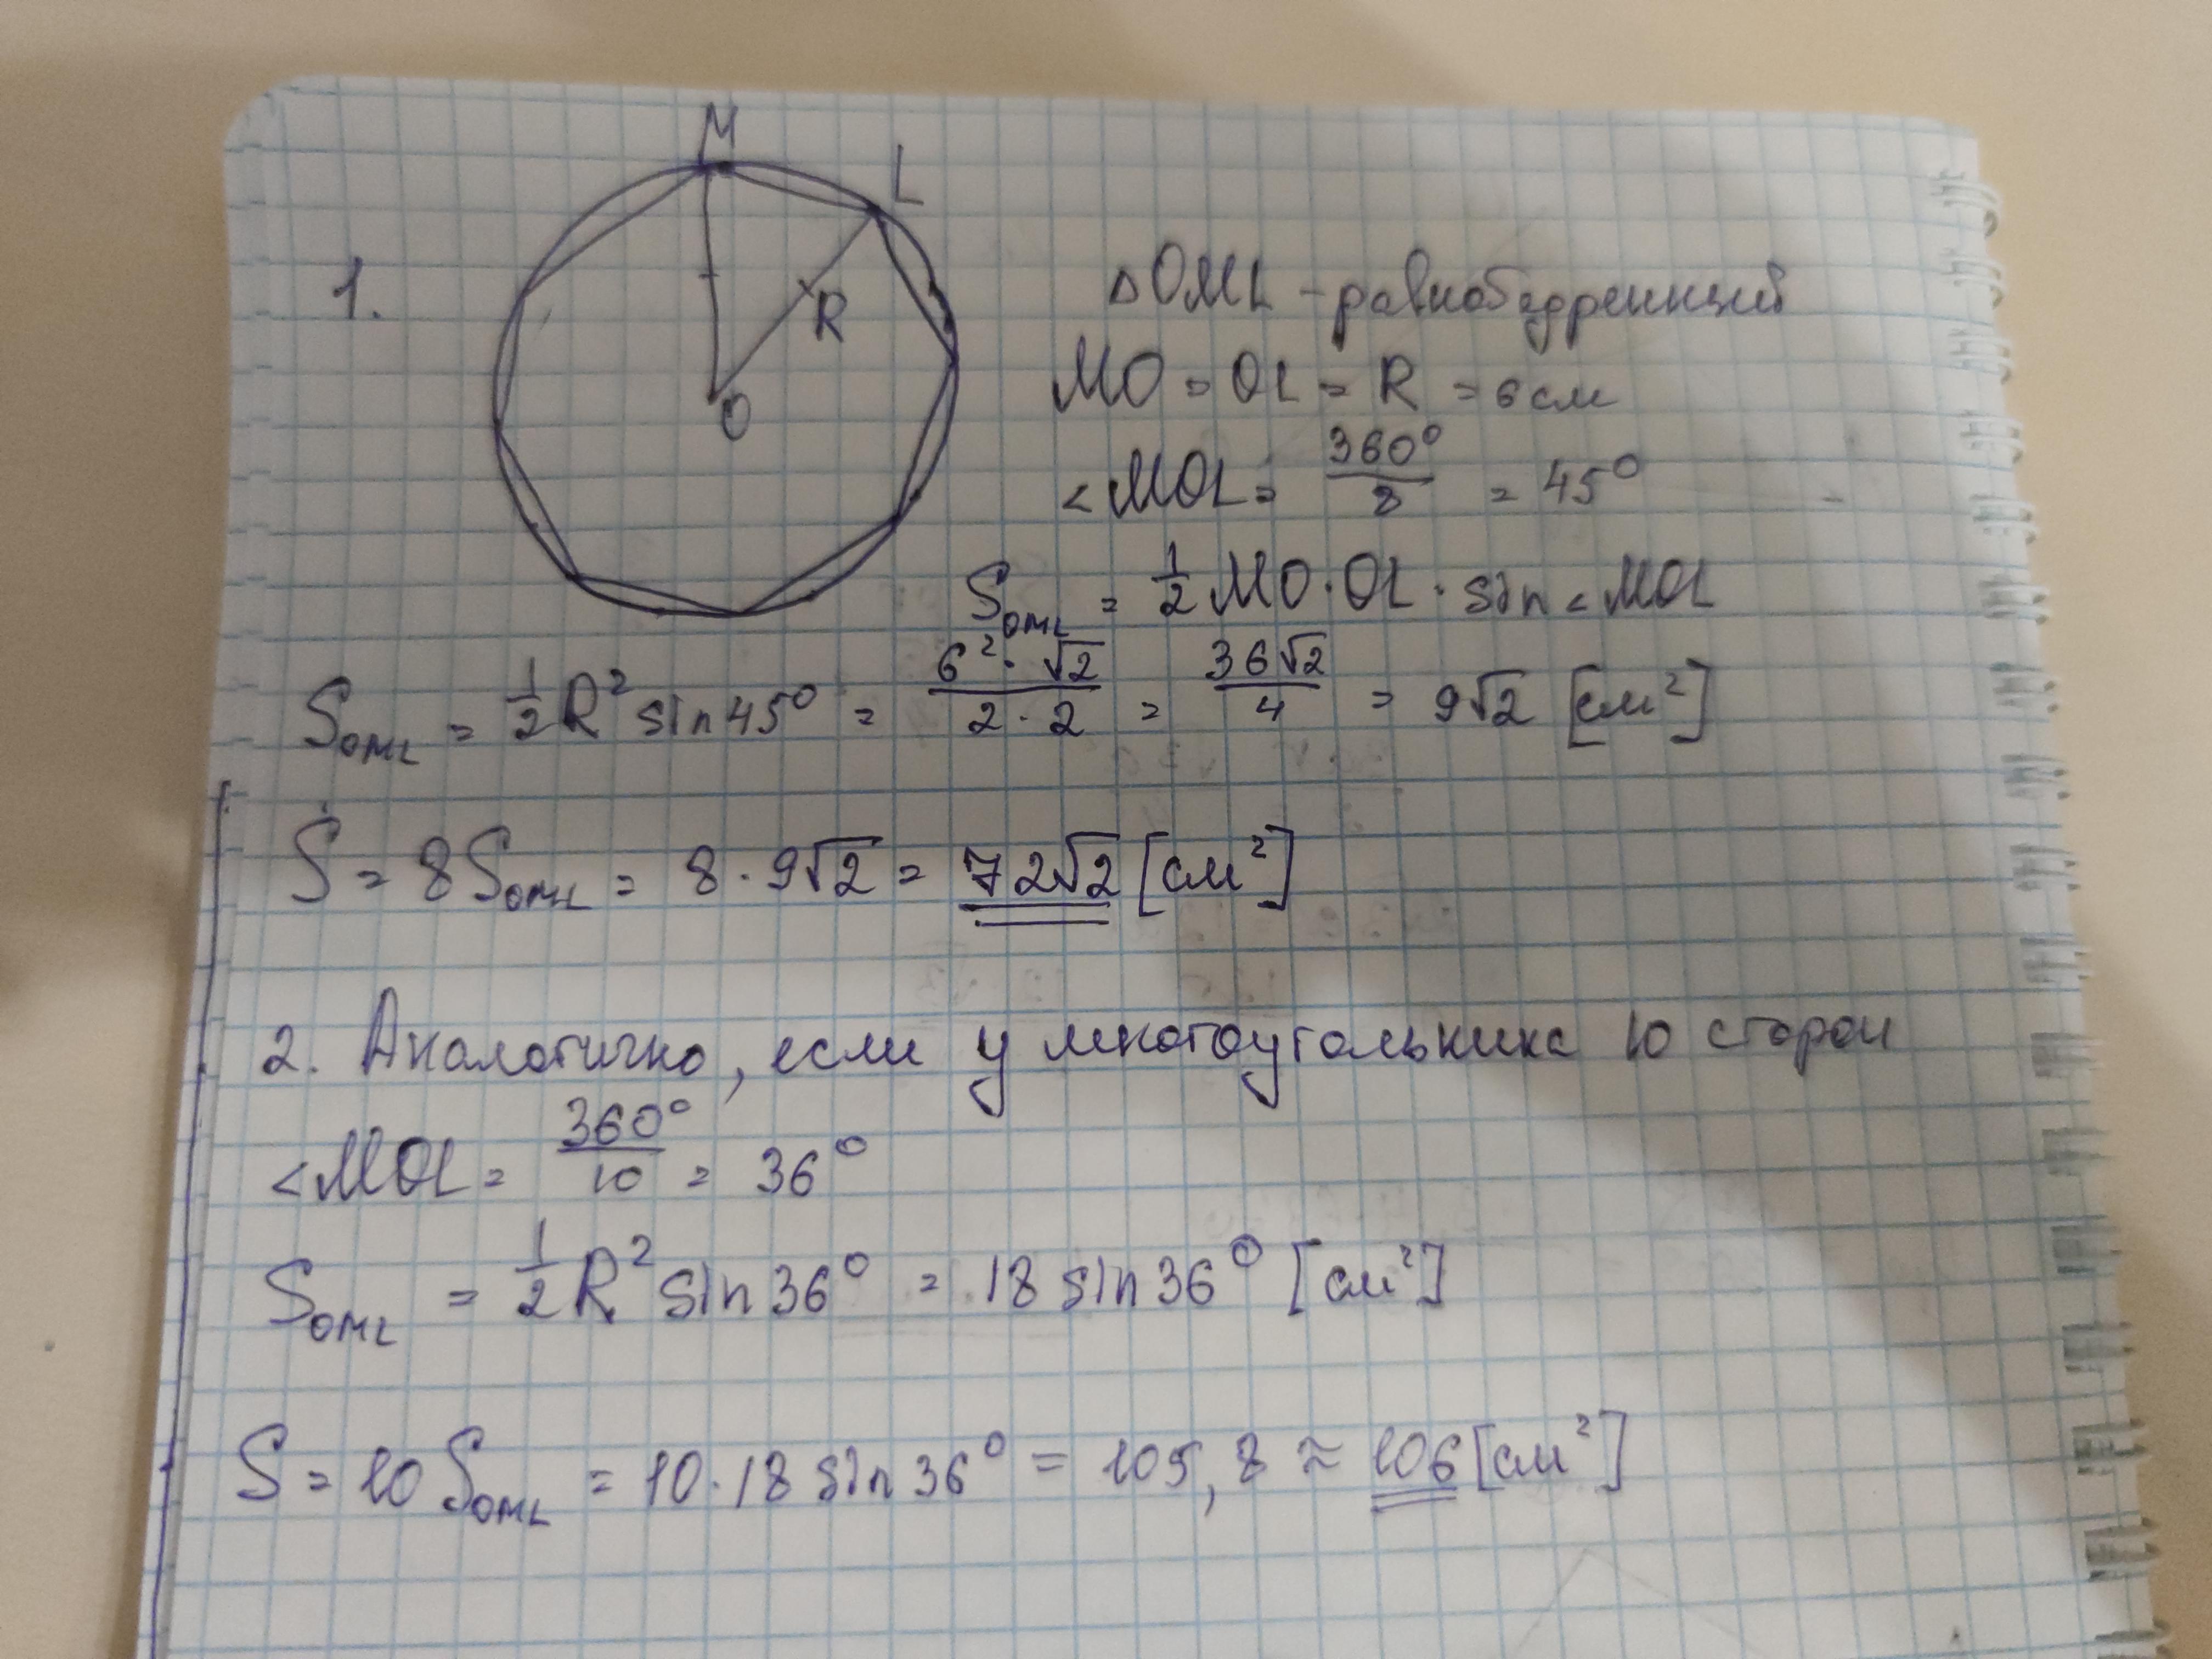 M
L
1.
R
O
△OML – равнобедренный
MO = OL = R = 6 см
<MOL = 360°/8 = 45°
S_OML = 1/2 MO · OL · sin < MOL
S_OML = 1/2 R² sin 45° = (6² · √2)/(2 · 2) = 36√2/4 = 9√2 [см²]
S = 8S_OML = 8 · 9√2 = 72√2 [см²]
2. Аналогично, если у многоугольника 10 сторон
<MOL = 360°/10 = 36°
S_OML = 1/2 R² sin 36° = 18 sin 36° [см²]
S = 10 S_OML = 10 · 18 sin 36° = 105,8 ≈ 106 [см²]